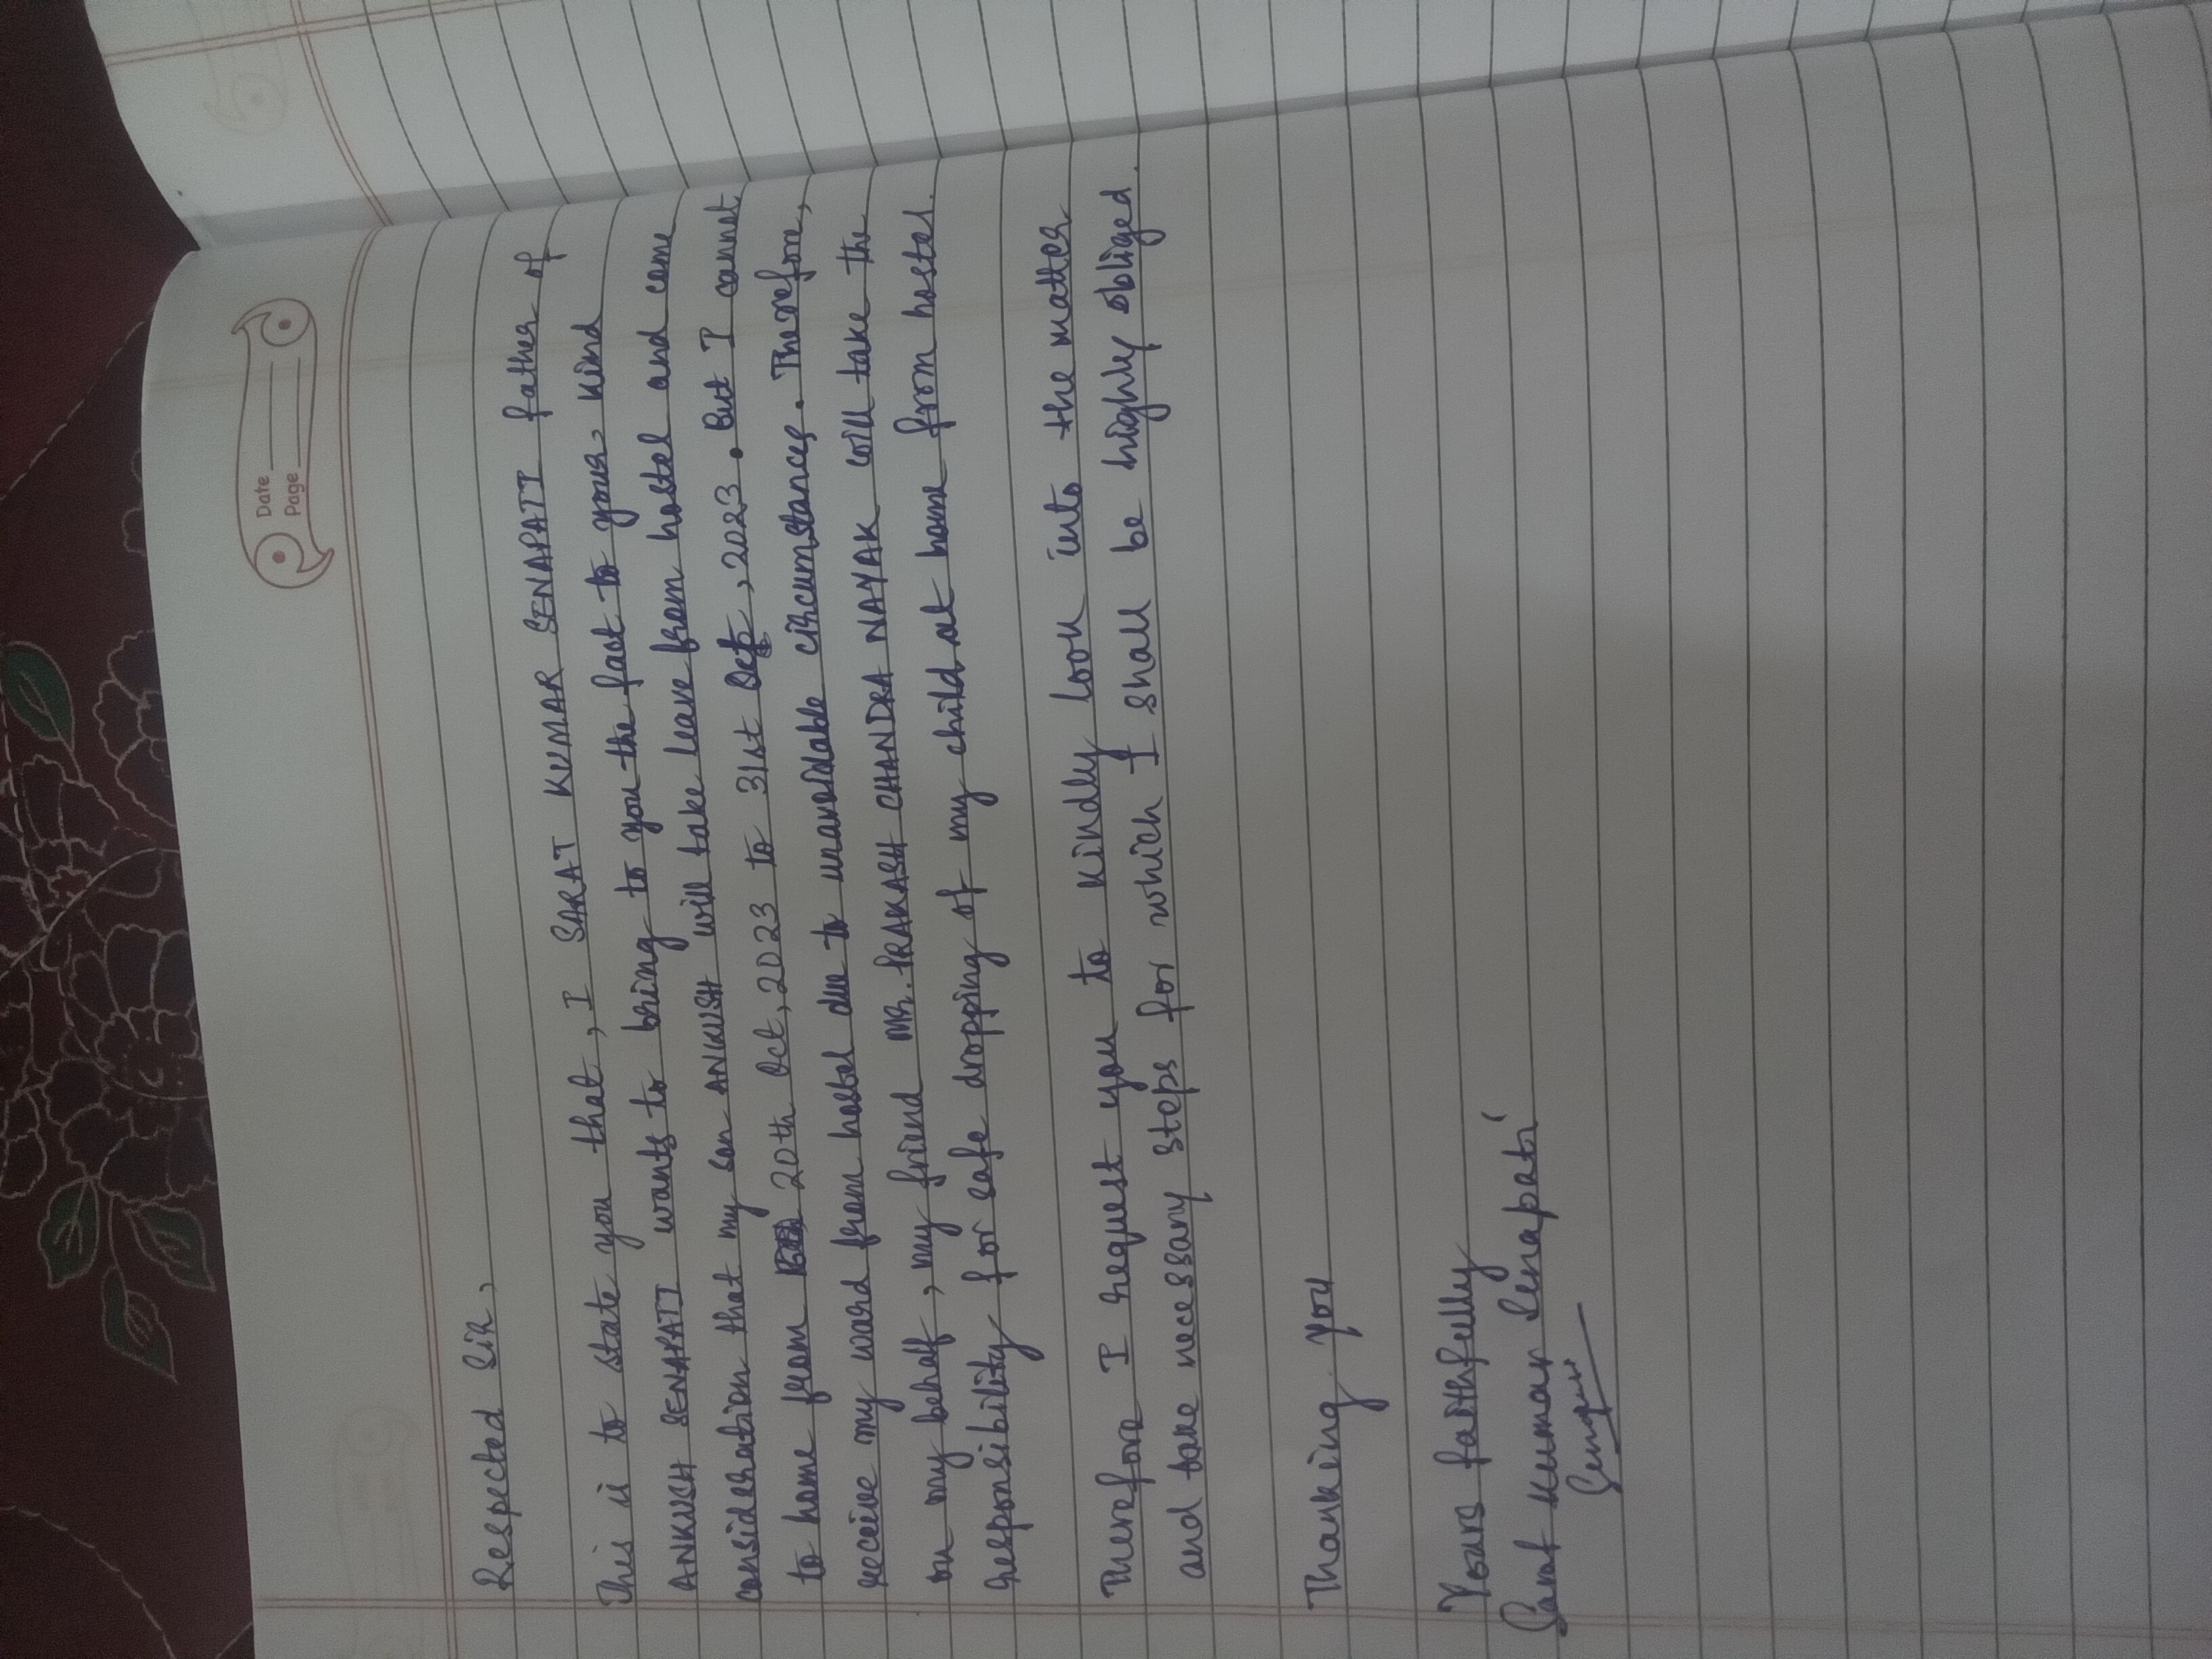 Date
Page
Respected Sir,
This is to state you that, I SARAT KUMAR SENAPATI father of
ANKUSH SENAPATI wants to bring to you the fact to your kind
consideration that my son ANKUSH will take leave from hostel and come
to home from 20th Oct, 2023 to 31st Oct, 2023. But I cannot
receive my ward from hostel due to unavoidable circumstances. Therefore,
on my behalf, my friend MR. PRAKASH CHANDRA NAYAK will take the
responsibility for safe dropping of my child at home from hostel.
Therefore I request you to kindly look into the matter
and take necessary steps for which I shall be highly obliged.
Thanking you
Yours faithfully
Sarat Kumar Senapati